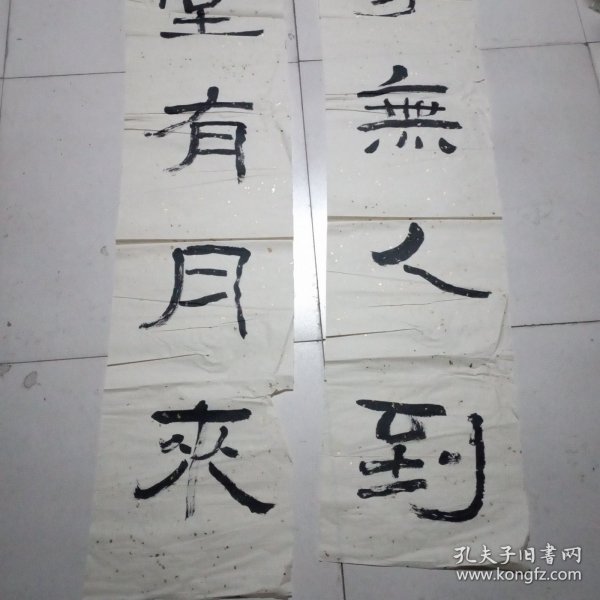 無人到
堂有月來
孔夫子旧书网
www.kongfz.com